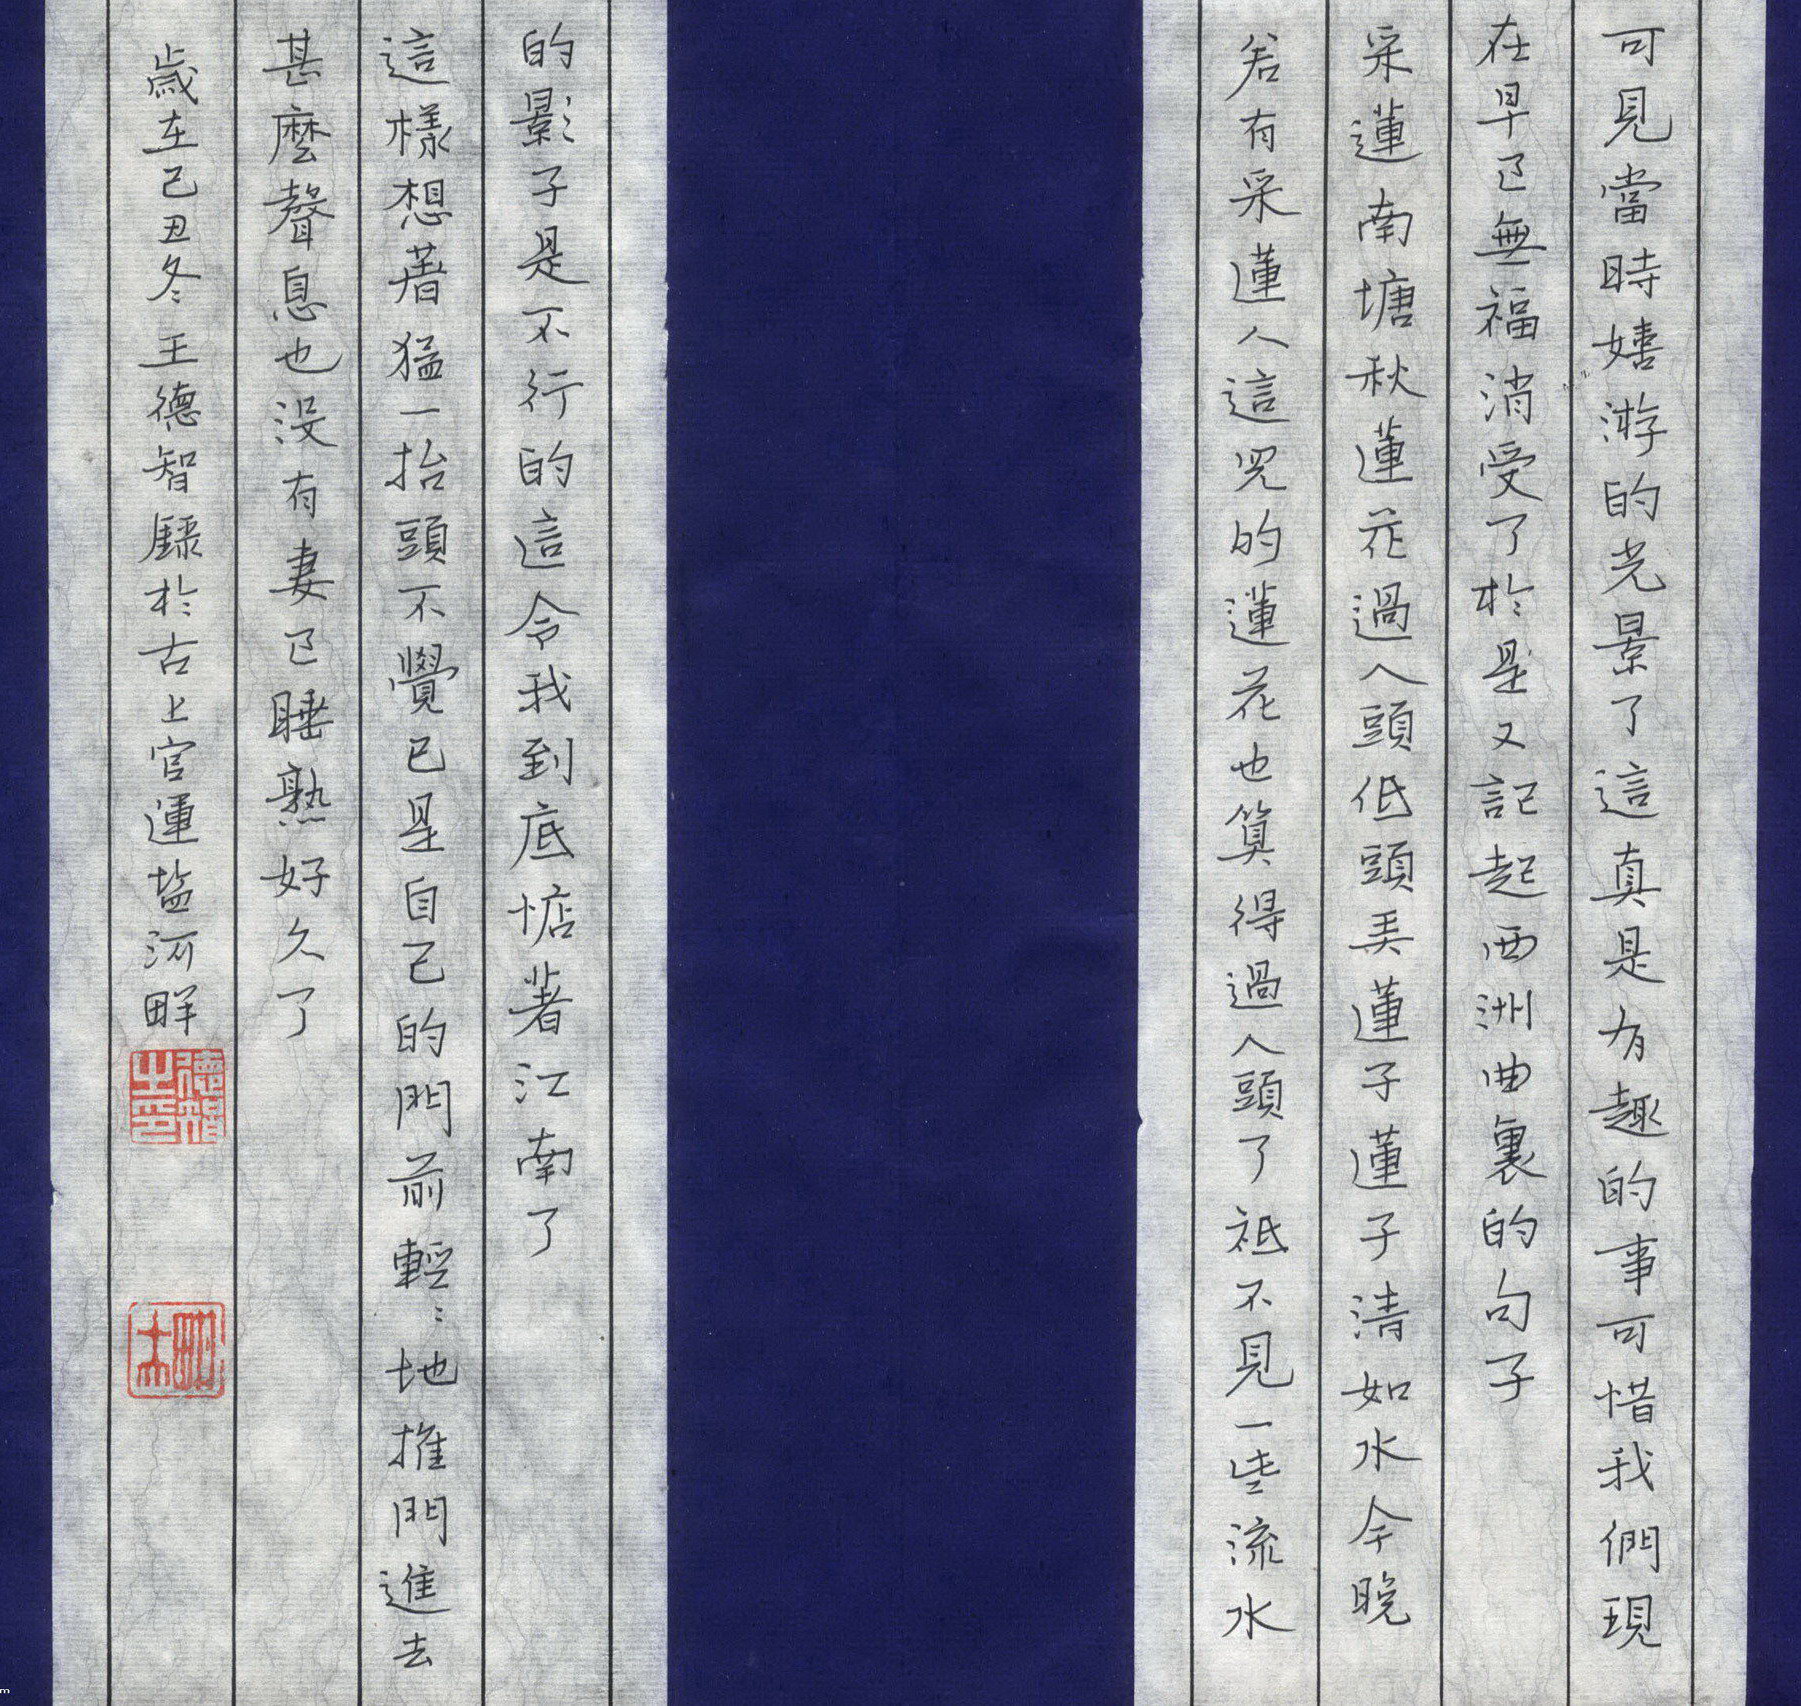 可見當時嬉游的光景了這真是有趣的事可惜我們現
在早已無福消受了於是又記起西洲曲裏的句子
采蓮南塘秋蓮花過人頭低頭弄蓮子蓮子清如水今晚
若有采蓮人這兒的蓮花也算得過人頭了祗不見一些流水
的影子是不行的這令我到底惦着江南了
這樣想著猛一抬頭不覺已是自己的門前輕々地推門進去
甚麼聲息也没有妻已睡熟好久了
歲在己丑冬王德智録於古上官運塩河畔
德智之印